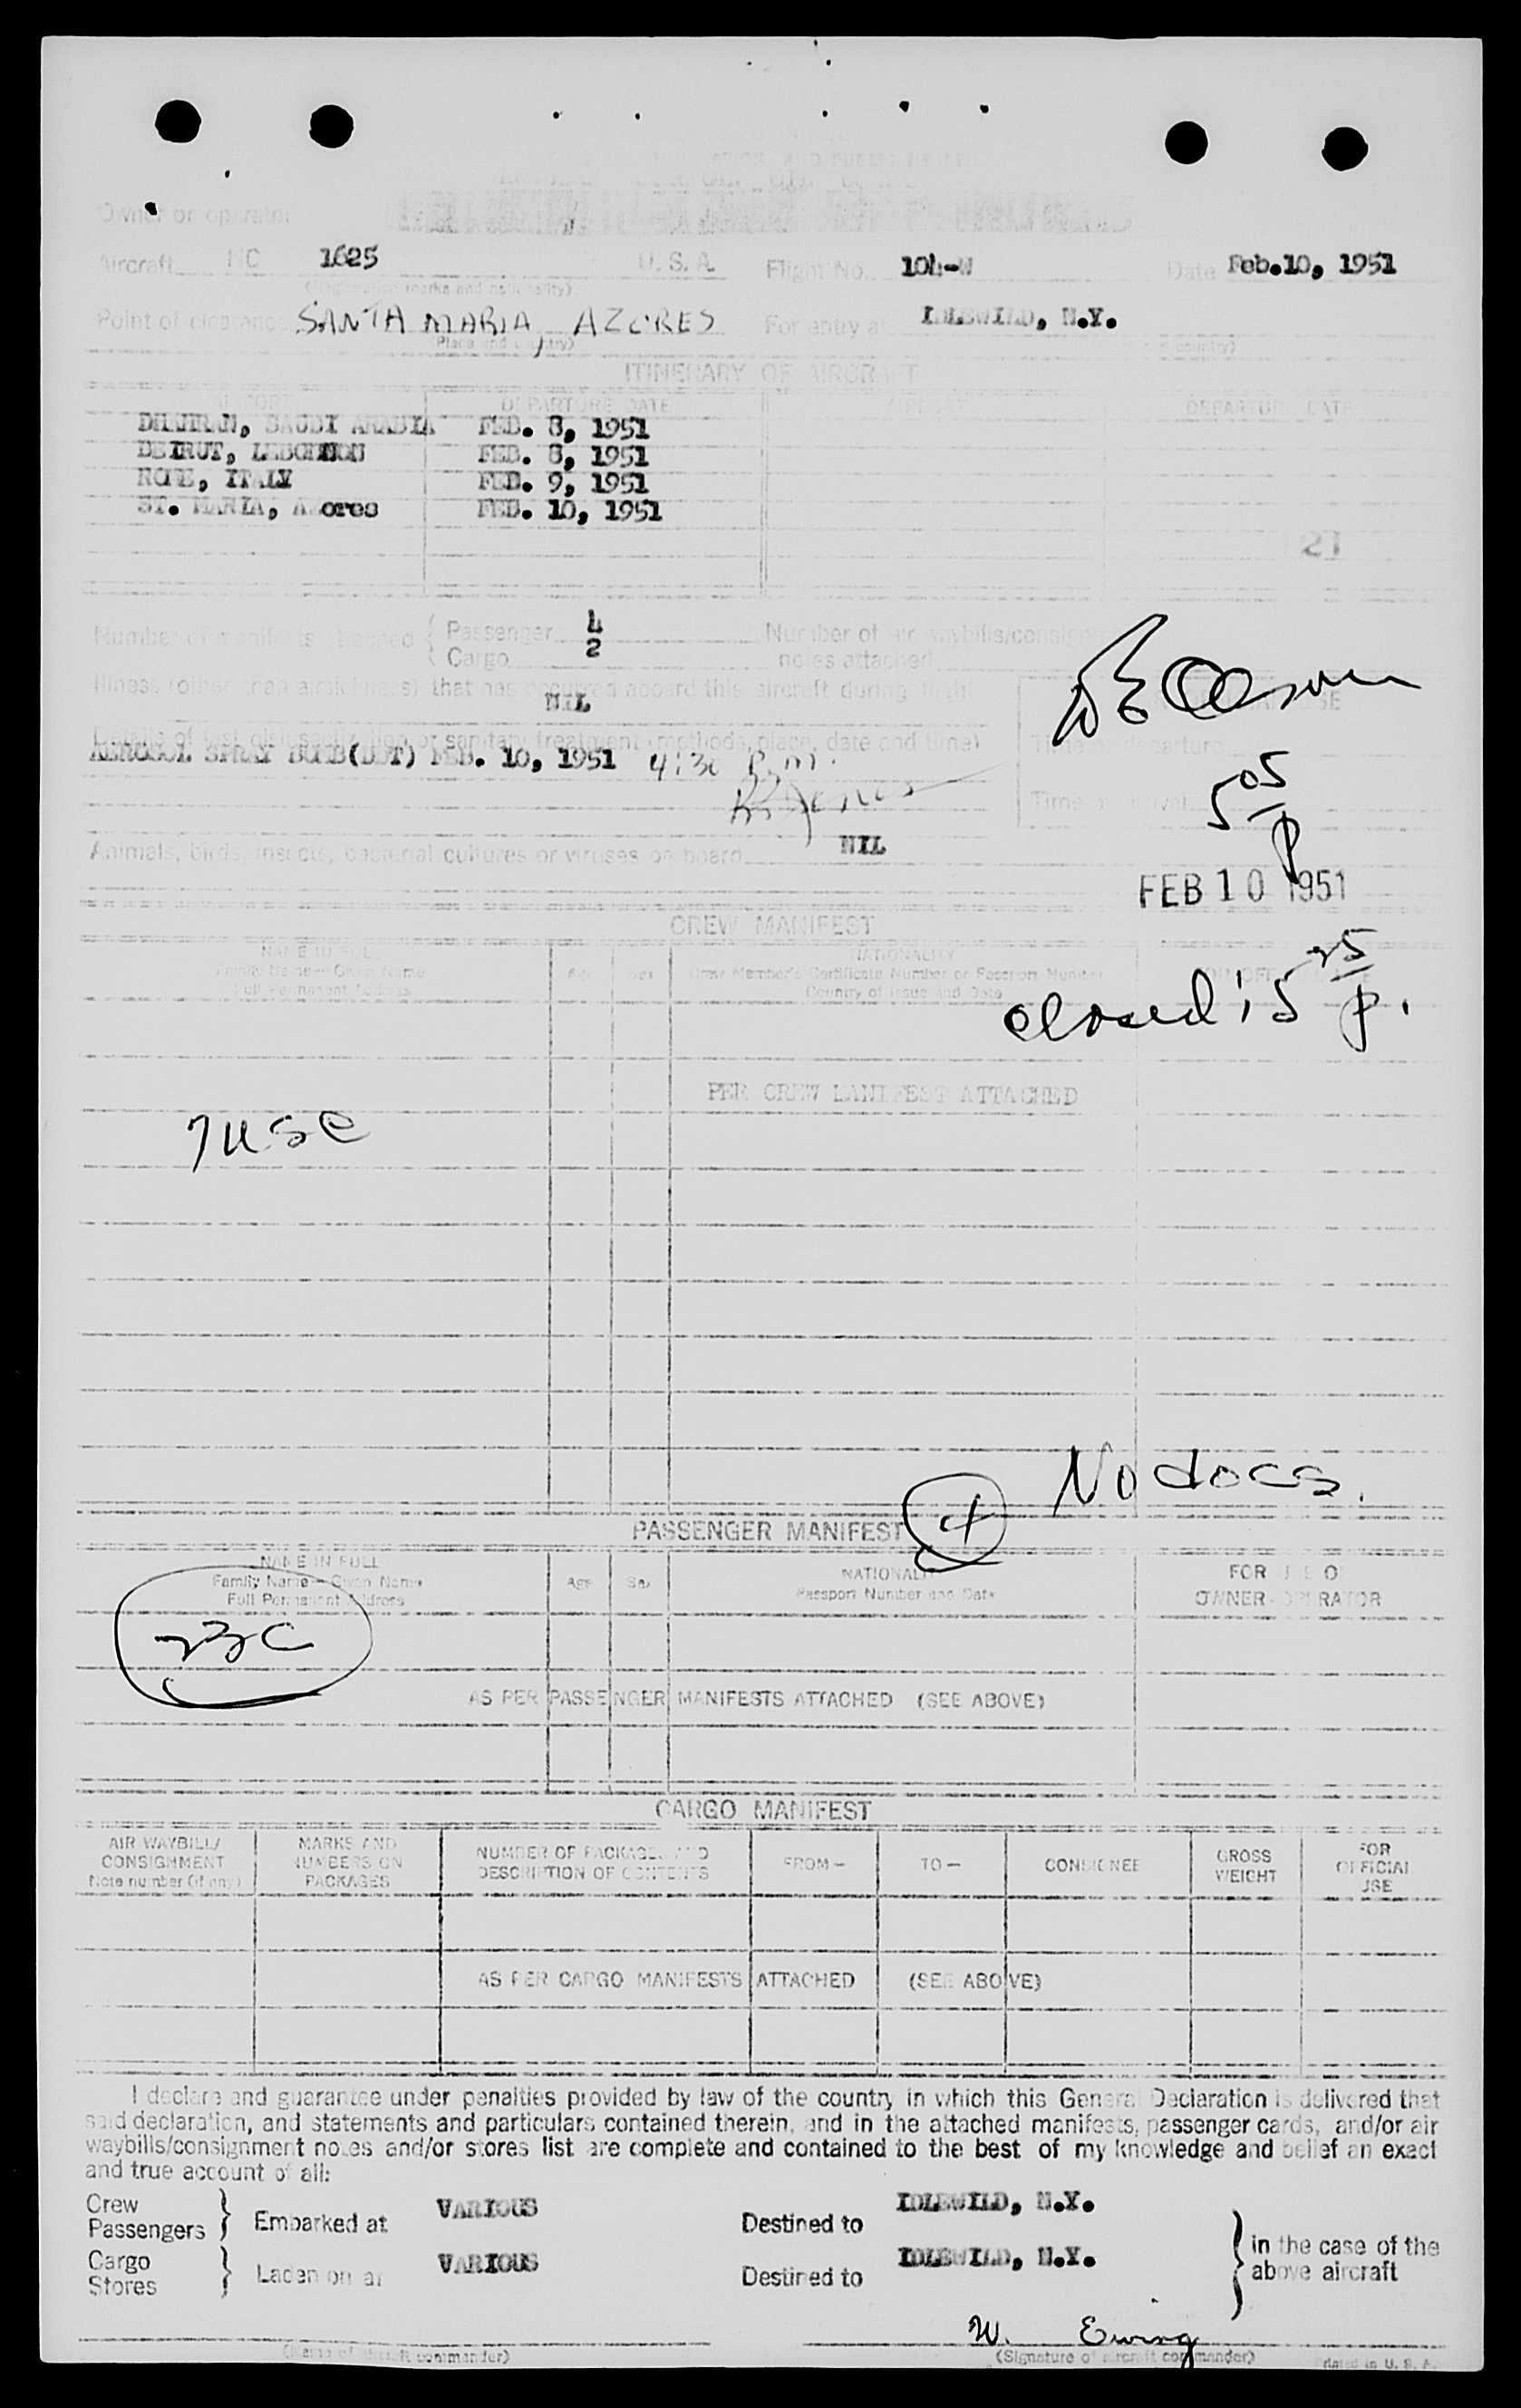 Owner or operator
Aircraft NC 1625 U. S. A. Flight No. 104-W Date Feb.10, 1951
(Registration marks and nationality)
Point of clearance SANTA MARIA, AZORES For entry at IDLEWILD, N.Y.
(Place and country)
ITINERARY OF AIRCRAFT
DEPARTURE DATE DEPARTURE DATE
DHAHRAN, SAUDI ARABIA FEB. 8, 1951
BEIRUT, LEBONNON FEB. 8, 1951
ROME, ITALY FEB. 9, 1951
ST. MARIA, Azores FEB. 10, 1951
21
Number of manifests attached { Passenger 4 Number of air waybills/consignment
Cargo 2 notes attached
Illness (other than airsickness) that has occurred aboard this aircraft during flight
NIL
USE
Details of last disinsectization or sanitary treatment (methods, place, date and time)
Time of departure
AEROSOL SPRAY BOMB(DDT) FEB. 10, 1951 4:30 P.m.
Time of arrival 5 05 P
Animals, birds, insects, bacterial cultures or viruses on board NIL
FEB 10 1951
CREW MANIFEST
NAME IN FULL NATIONALITY
Family Name—Given Name Age Sex Crew Member's Certificate Number or Passport Number
Full Permanent Address Country of Issue and Date
closed 5 25 p.
PER CREW MANIFEST ATTACHED
No docs.
PASSENGER MANIFEST 4
NAME IN FULL NATIONALITY FOR USE OF
Family Name—Given Name Age Sex Passport Number and Date
Full Permanent Address OWNER-OPERATOR
AS PER PASSENGER MANIFESTS ATTACHED (SEE ABOVE)
CARGO MANIFEST
AIR WAYBILL/ MARKS AND NUMBER OF PACKAGES AND FROM— TO— CONSIGNEE GROSS FOR
CONSIGNMENT NUMBERS ON DESCRIPTION OF CONTENTS WEIGHT OFFICIAL
Note number (if any) PACKAGES USE
AS PER CARGO MANIFESTS ATTACHED (SEE ABOVE)
I declare and guarantee under penalties provided by law of the country in which this General Declaration is delivered that
said declaration, and statements and particulars contained therein, and in the attached manifests, passenger cards, and/or air
waybills/consignment notes and/or stores list are complete and contained to the best of my knowledge and belief an exact
and true account of all:
Crew
Passengers } Embarked at VARIOUS Destined to IDLEWILD, N.Y.
Cargo
Stores } Laden on at VARIOUS Destined to IDLEWILD, N.Y.
} in the case of the
above aircraft
W. Ewing
(Name of aircraft commander) (Signature of aircraft commander) Printed in U. S. A.